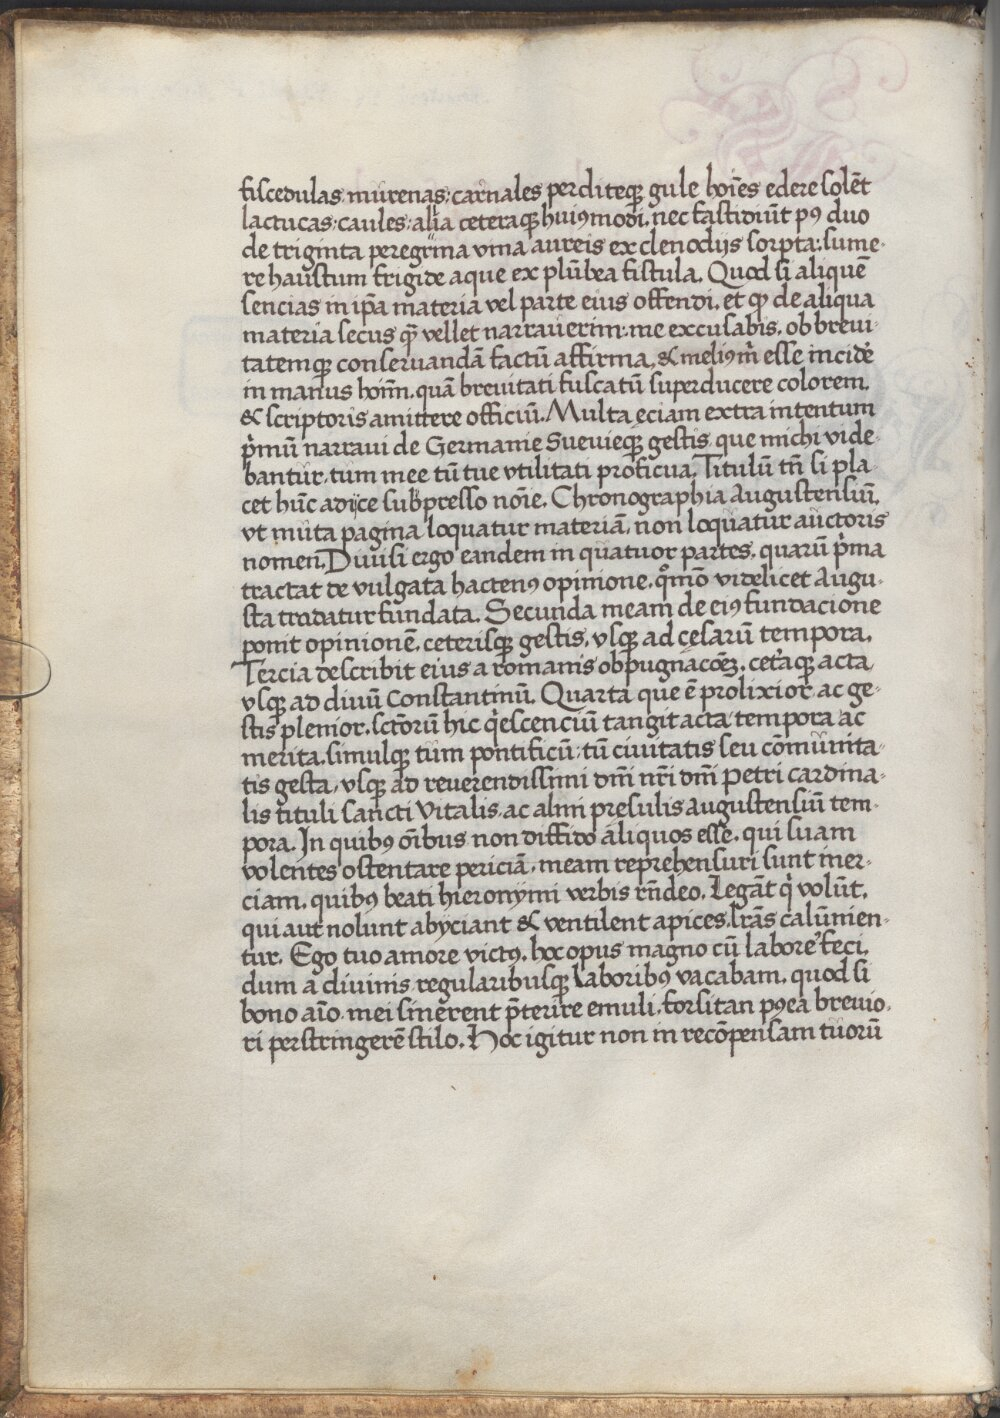 fiscedulas murenas: carnales perditeq̨ gule hoīes edere solēt
lactucas: caules: alia ceteraq̨ huiꝰmodi, nec fastidiūt pꝰ duo
de triginta peregrina vina aureis ex clenodijs sorpta: sume-
re haustum frigide aque ex plūbea fistula. Quod si aliquē
sencias in ip̄a materia vel parte eius offendi, et qꝫ de aliqua
materia secus q̄ꝫ vellet narrauerim: me excusabis, ob breui-
tatemq̨ conseruandā factū affirma, & meliꝰ m̄ esse incidē
in manus hoīm, quā breuitati fuscatū superducere colorem,
& scriptoris amittere officiū. Multa eciam extra intentum
p̄mū narraui de Germanie Sueuieq̨ gestis, que michi vide-
bantur, tum mee tū tue vtilitati proficua. Titulū tn̄ si pla-
cet hūc adijce subpresso noīe. Chronographia Augustensiū,
vt muta pagina loquatur materiā, non loquatur auctoris
nomen. Diuisi ergo eandem in quatuor partes, quarū p̄ma
tractat de vulgata hactenꝰ opinione, qͦmō videlicet Augu-
sta tradatur fundata. Secunda meam de eiꝰ fundacione
ponit opinionē, ceterisq̨ gestis, vsq̨ ad cesarū tempora.
Tercia describit eius a romanis obpugnacōeꝫ, cet̄aq̨ acta,
vsq̨ ad diuū Constantinū. Quarta que ē prolixior, ac ge-
stis plenior, sctōrū hic q̄escenciū tangit acta tempora ac
merita, simulq̨ tum pontificū: tū ciuitatis seu cōmunita-
tis gesta, vsq̨ ad reuerendissimi dn̄i nr̄i dn̄i Petri cardina-
lis tituli sancti Vitalis, ac almi presulis augustensiū tem-
pora. In quibꝰ oībus non diffido aliquos esse, qui suam
volentes ostentare periciā, meam reprehensuri sunt iner-
ciam, quibꝰ beati hieronymi verbis rn̄deo. Legāt q̄ volūt,
qui aut nolunt abyciant & ventilent apices, lrās calūnien-
tur. Ego tuo amore victꝰ, hoc opus magno cū labore feci,
dum a diuinis regularibusq̨ laboribꝰ vacabam, quod si
bono aīo mei sinerent p̄terire emuli, forsitan pꝰea breuio-
ri perstringerē stilo. Hoc igitur non in recōpensam tuorū